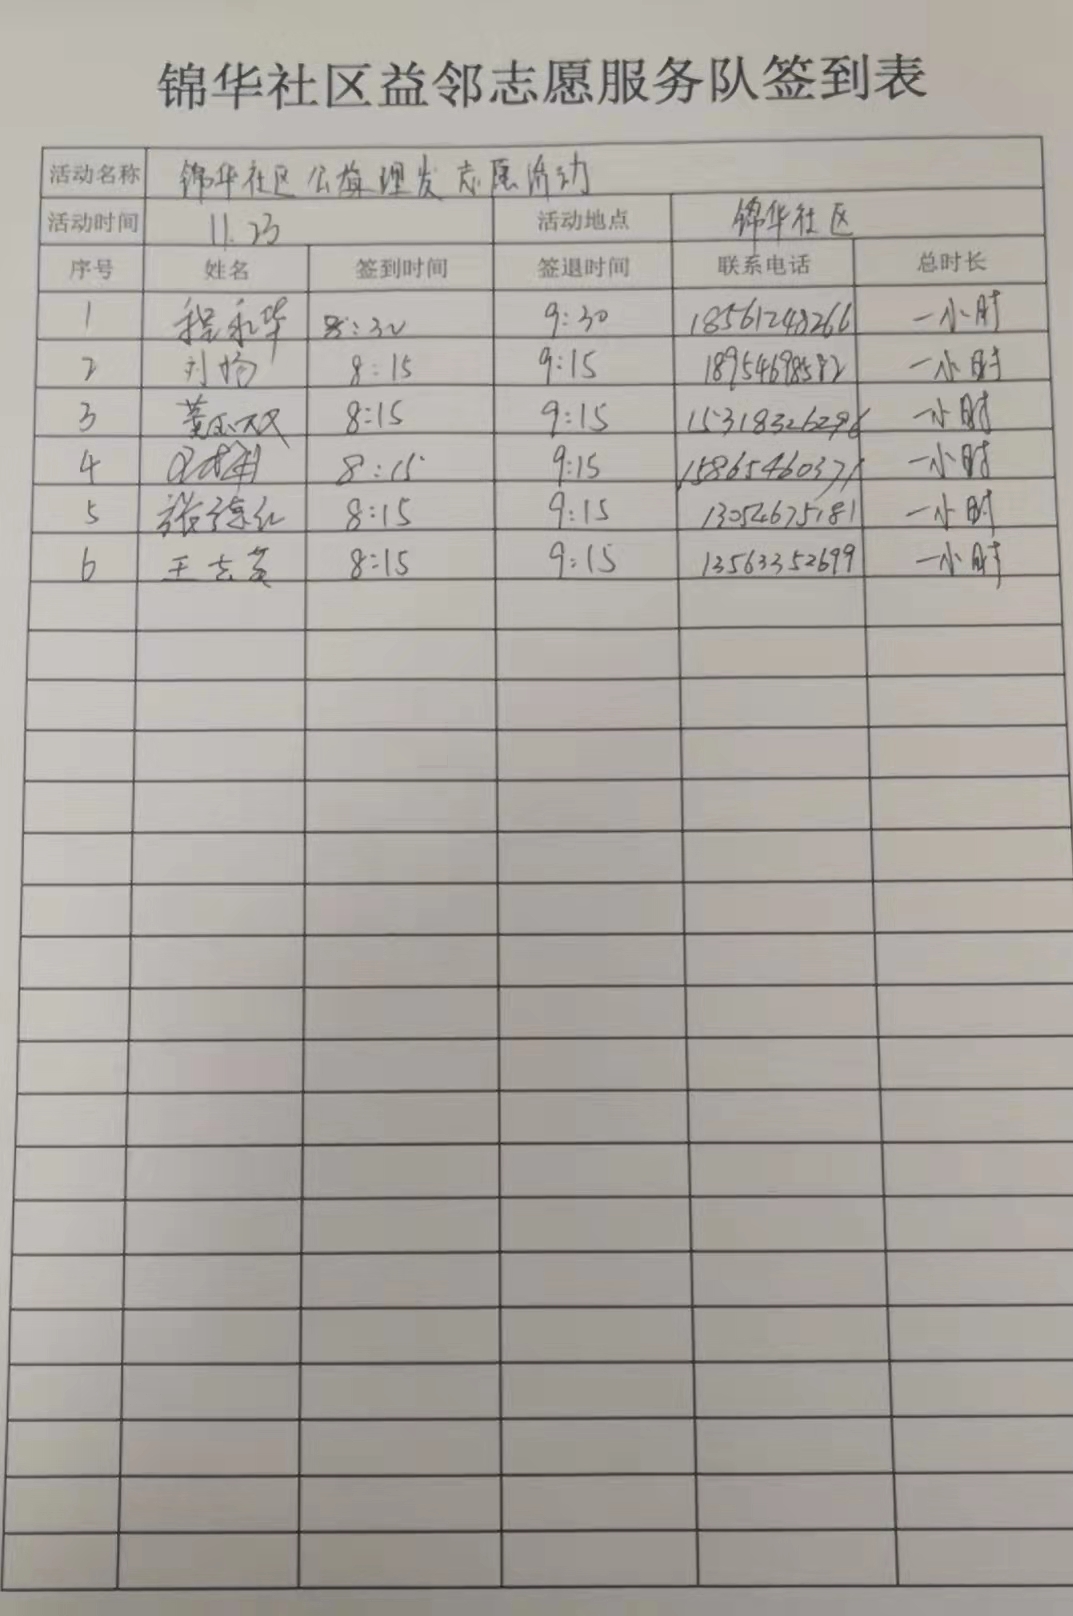 锦华社区益邻志愿服务队签到表
活动名称 锦华社区公益理发志愿活动
活动时间 11.23 活动地点 锦华社区
序号 姓名 签到时间 签退时间 联系电话 总时长
1 程永华 8:30 9:30 18561248266 一小时
2 刘杨 8:15 9:15 18954698582 一小时
3 8:15 9:15 15318326296 一小时
4 8:15 9:15 15865460371 一小时
5 8:15 9:15 13054675181 一小时
6 王志英 8:15 9:15 13563352699 一小时